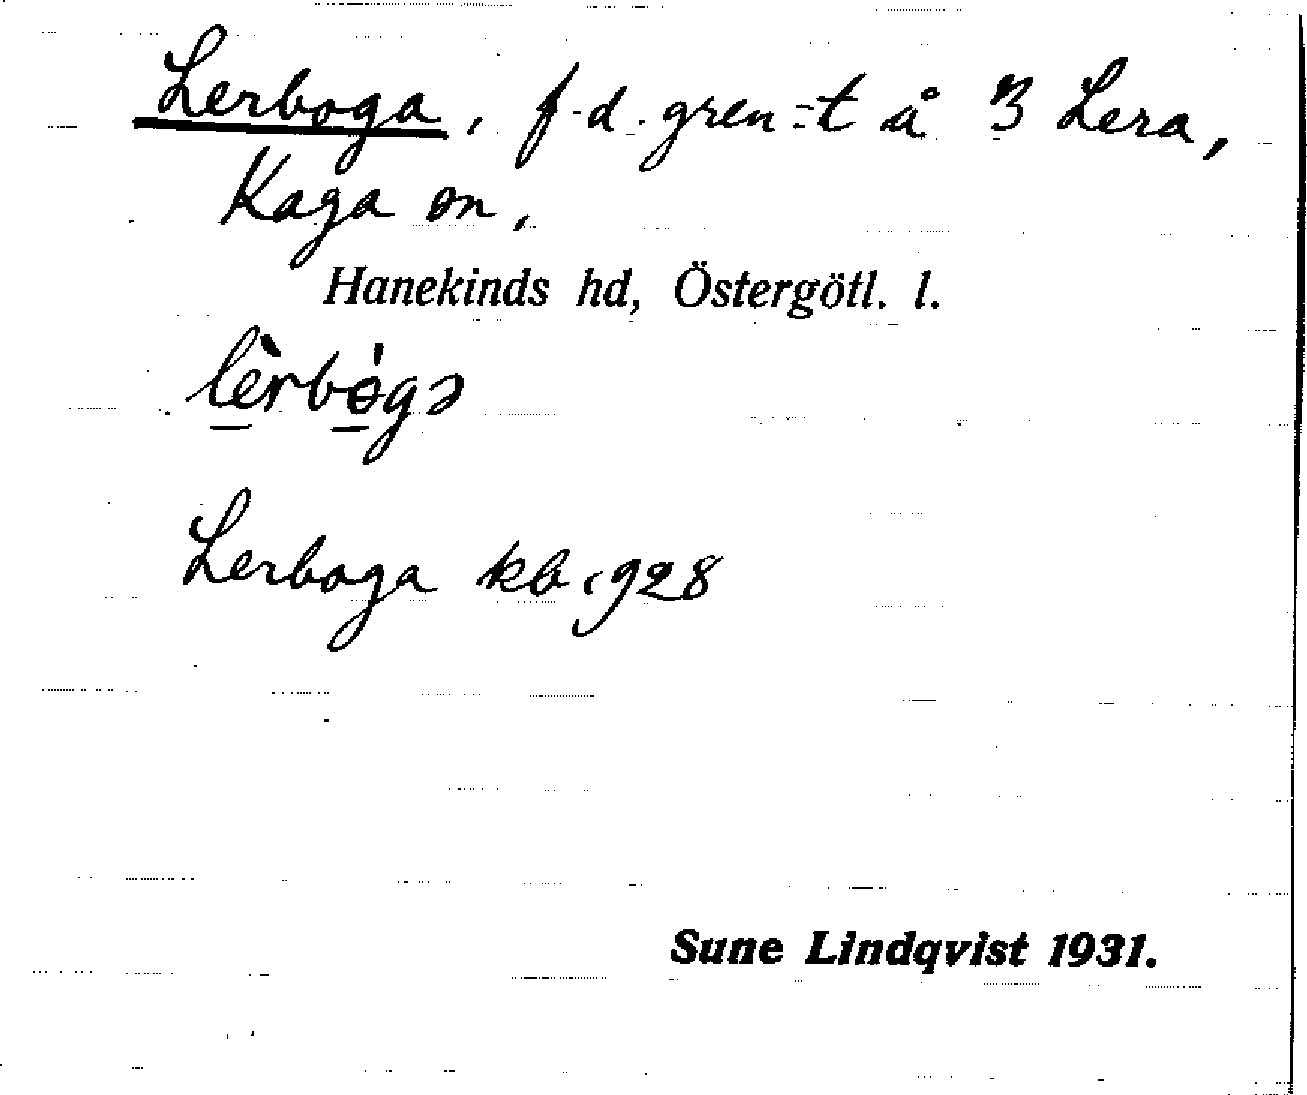 Lerboga, f.d. gren-t å 3 Lera,
Kaga sn,
Hanekinds hd, Östergötl. l.
lèrbógə
Lerboga kb. 1928
Sune Lindqvist 1931.